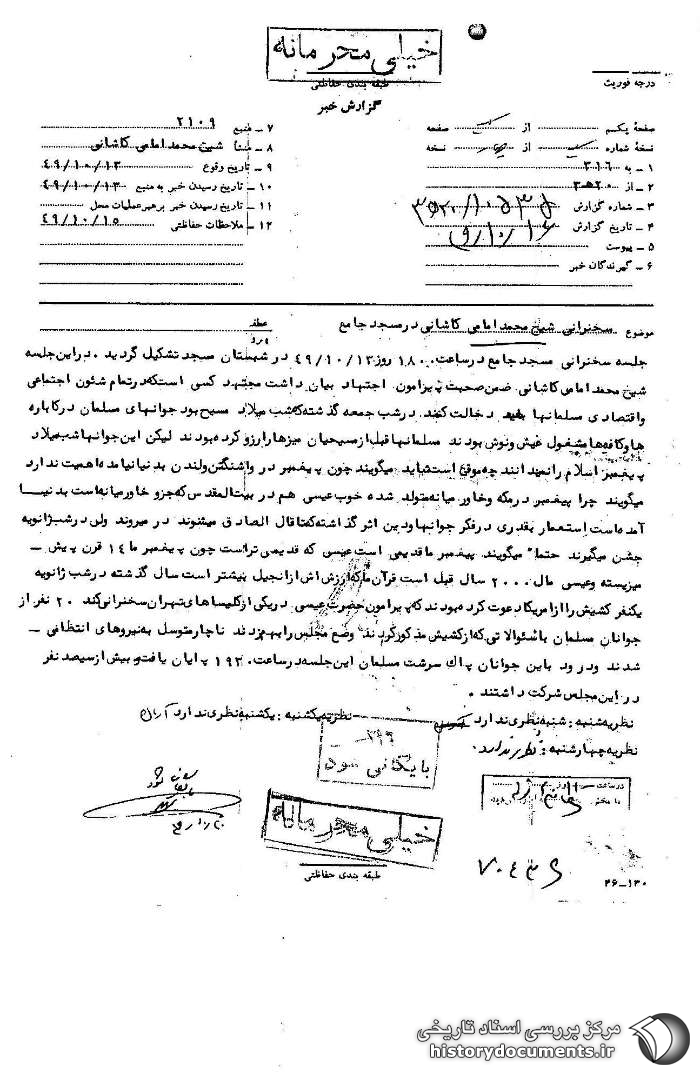 خیلی محرمانه
طبقه بندی حفاظتی
گزارش خبر
درجه فوریت
صفحهٔ یکم از یک صفحه
نسخهٔ شماره از نسخه
۱ ـ به ۳۱۶
۲ ـ از ۲۰ﻫ۳
۳ ـ شماره گزارش
۴ ـ تاریخ گزارش
۵ ـ پیوست
۶ ـ گیرندگان خبر
۷ ـ منبع ۲۱۰۹
۸ ـ منشأ شیخ محمد امامی کاشانی
۹ ـ تاریخ وقوع ۴۹/۱۰/۱۳
۱۰ ـ تاریخ رسیدن خبر به منبع ۴۹/۱۰/۱۳
۱۱ ـ تاریخ رسیدن خبر برهبر عملیات محل
۱۲ ـ ملاحظات حفاظتی ۴۹/۱۰/۱۵
موضوع سخنرانی شیخ محمد امامی کاشانی در مسجد جامع
جلسه سخنرانی مسجد جامع در ساعت ۱۸۰۰ روز ۴۹/۱۰/۱۳ در شبستان مسجد تشکیل گردید . در این جلسه
شیخ محمد امامی کاشانی ضمن صحبت پیرامون اجتهاد بیان داشت مجتهد کسی است که در تمام شئون اجتماعی
و اقتصادی مسلمانها دخالت کند . در شب جمعه گذشته که شب میلاد مسیح بود جوانهای مسلمان در کاباره
ها و کافه ها مشغول عیش و نوش بودند مسلمانها قبل از مسیحیان میزها را رزرو کرده بودند لیکن این جوانها شب میلاد
پیغمبر اسلام را نمیدانند چه موقع است شاید میگویند چون پیغمبر در واشنگتن و لندن بدنیا نیامده اهمیت ندارد
میگویند چرا پیغمبر در مکه و خاورمیانه متولد شده خوب عیسی هم در بیت المقدس که جزو خاورمیانه است بدنیا
آمده است استعمار بقدری در فکر جوانها و دین اثر گذاشته که تا قال الصادق میشنوند در میروند ولی در شب ژانویه
جشن میگیرند حتما" میگویند پیغمبر ما قدیمی است عیسی که قدیمی تر است چون پیغمبر ما ۱۴ قرن پیش ـ
میزیسته و عیسی مال ۲۰۰۰ سال قبل است قرآن ما که ارزش اش از انجیل بیشتر است سال گذشته در شب ژانویه
یکنفر کشیش را از امریکا دعوت کرده بودند که پیرامون حضرت عیسی در یکی از کلیساهای تهران سخنرانی کند ۲۰ نفر از
جوانان مسلمان با سئوالاتی که از کشیش مذکور کردند وضع مجلس را بهم زدند ناچار متوسل به نیروهای انتظامی ـ
شدند و درود باین جوانان پاک سرشت مسلمان این جلسه در ساعت ۱۹۳۰ پایان یافت و بیش از سیصد نفر
در این مجلس شرکت داشتند .
نظریه شنبه : شنبه نظری ندارد نظریه یکشنبه : یکشنبه نظری ندارد
نظریه چهارشنبه : نظری ندارد.
۳۱۶
بایگانی شود
خیلی محرمانه
طبقه بندی حفاظتی
۲۶ـ۱۳۰
مرکز بررسی اسناد تاریخی
historydocuments.ir